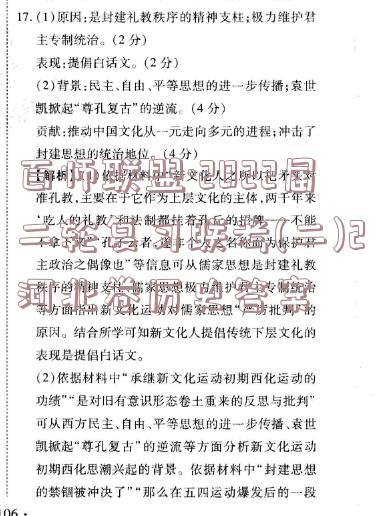 17.(1)原因:是封建礼教秩序的精神支柱;极力维护君
主专制统治。(2分)
表现:提倡白话文。(2分)
(2)背景:民主、自由、平等思想的进一步传播;袁世
凯掀起“尊孔复古”的逆流。(4分)
贡献:推动中国文化从一元走向多元的进程;冲击了
封建思想的统治地位。(4分)
【解析】(1)依据材料中“新文化人之所以把矛头对
准孔教,主要在于它作为上层文化的主体,两千年来
‘吃人的礼教’和法制都挂着孔丘的招牌——不能
不拿下来”“孔子云者,遂非个人之名称而为保护君
主政治之偶像也”等信息可从儒家思想是封建礼教
秩序的精神支柱、儒家思想极力维护君主专制统治
等方面指出新文化运动对儒家思想“严厉批判”的
原因。结合所学可知新文化人提倡传统下层文化的
表现是提倡白话文。
(2)依据材料中“承继新文化运动初期西化运动的
功绩”“是对旧有意识形态卷土重来的反思与批判”
可从西方民主、自由、平等思想的进一步传播、袁世
凯掀起“尊孔复古”的逆流等方面分析新文化运动
初期西化思潮兴起的背景。依据材料中“封建思想
的禁锢被冲决了”“那么在五四运动爆发后的一段
106·
百师联盟2022届
二轮复习联考(二)2
河北卷历史答案